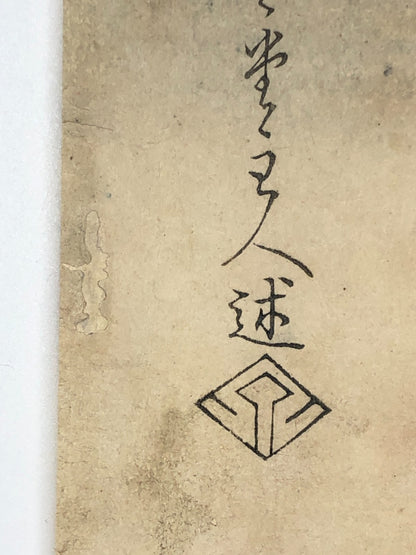 堂主人述